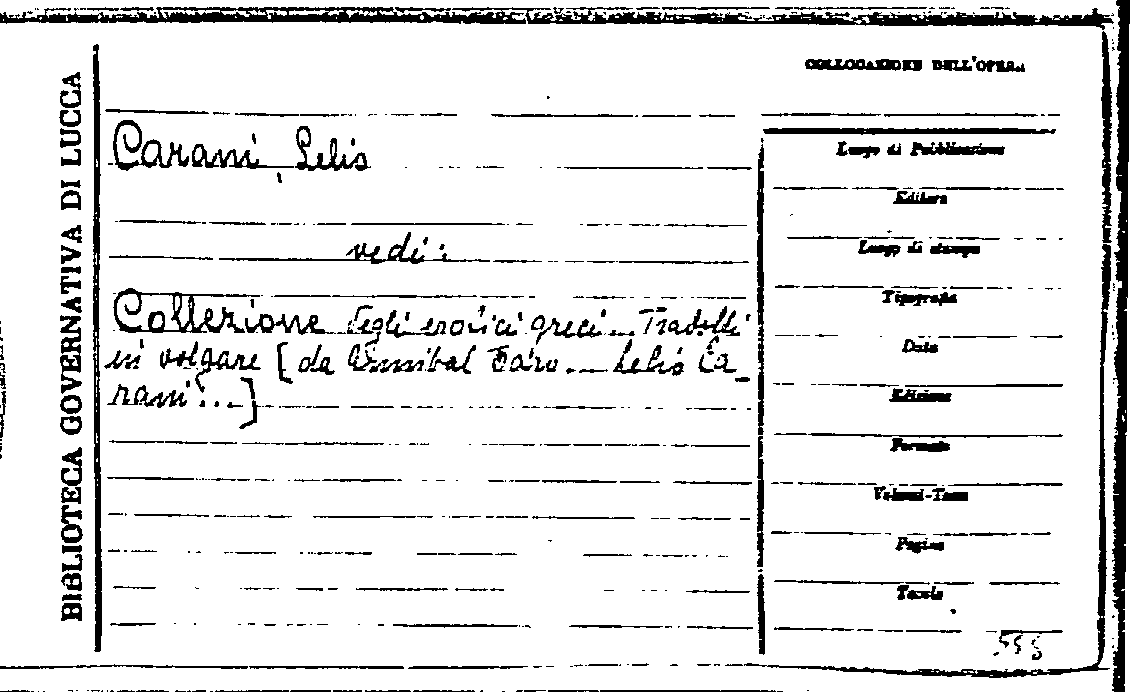 BIBLIOTECA GOVERNATIVA DI LUCCA
COLLOCAZIONE DELL'OPERA
Carani, Lelio
vedi:
Collezione degli erotici greci... Tradotti
in volgare [da Annibal Caro... Lelio Ca-
rani...]
Luogo di Pubblicazione
Editore
Luogo di stampa
Tipografia
Data
Edizione
Formato
Volumi-Tomi
Pagine
Tavole